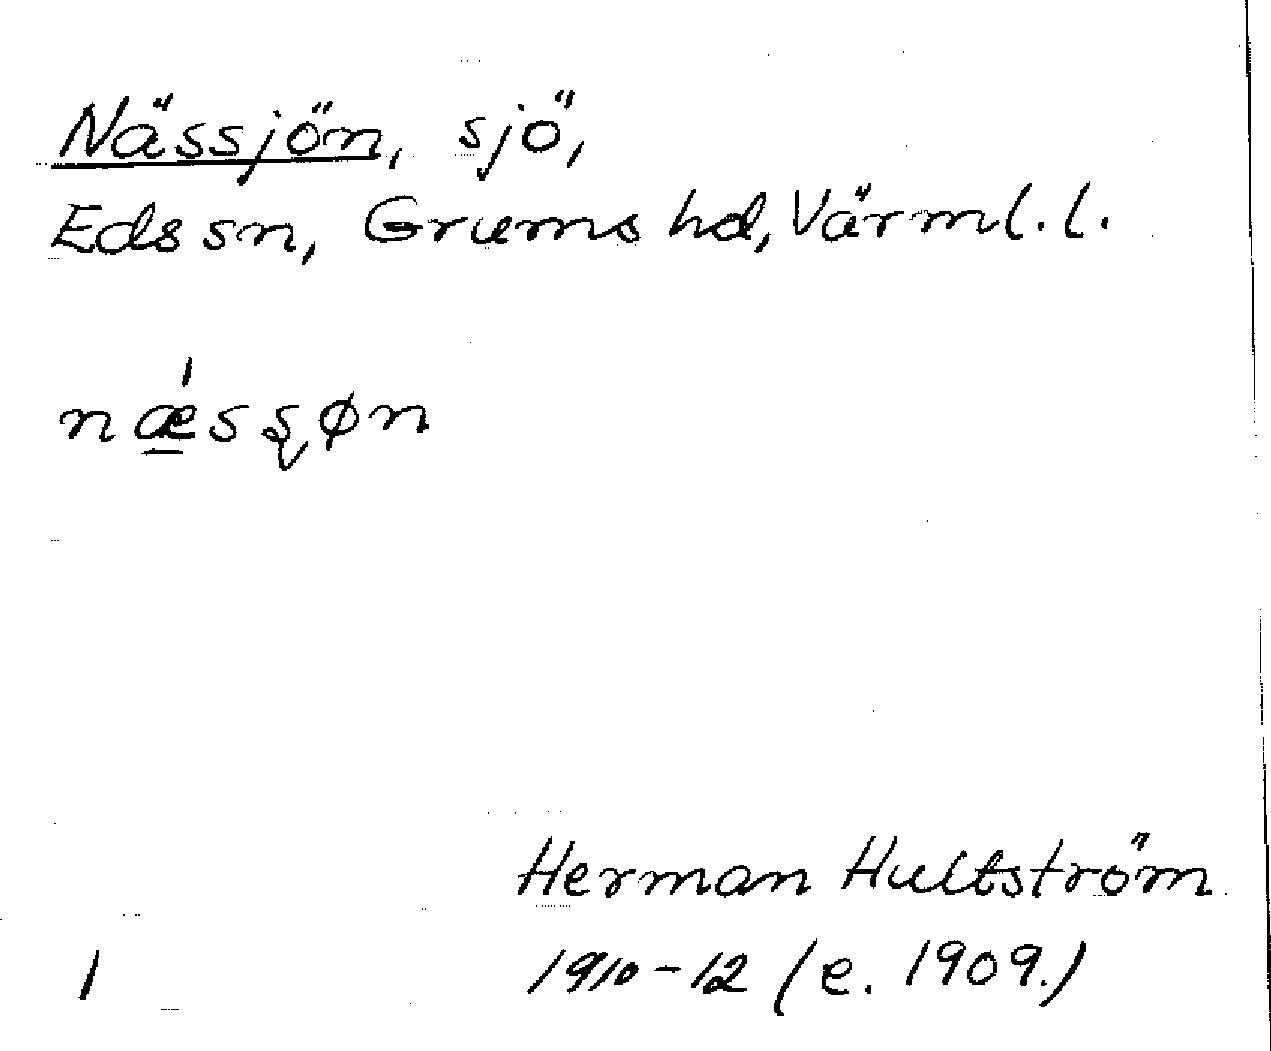 Nässjön, sjö,
Eds sn, Grums hd, Värml. l.
nǽ̲sʂøn
Herman Hultström
1 1910-12 (e. 1909.)